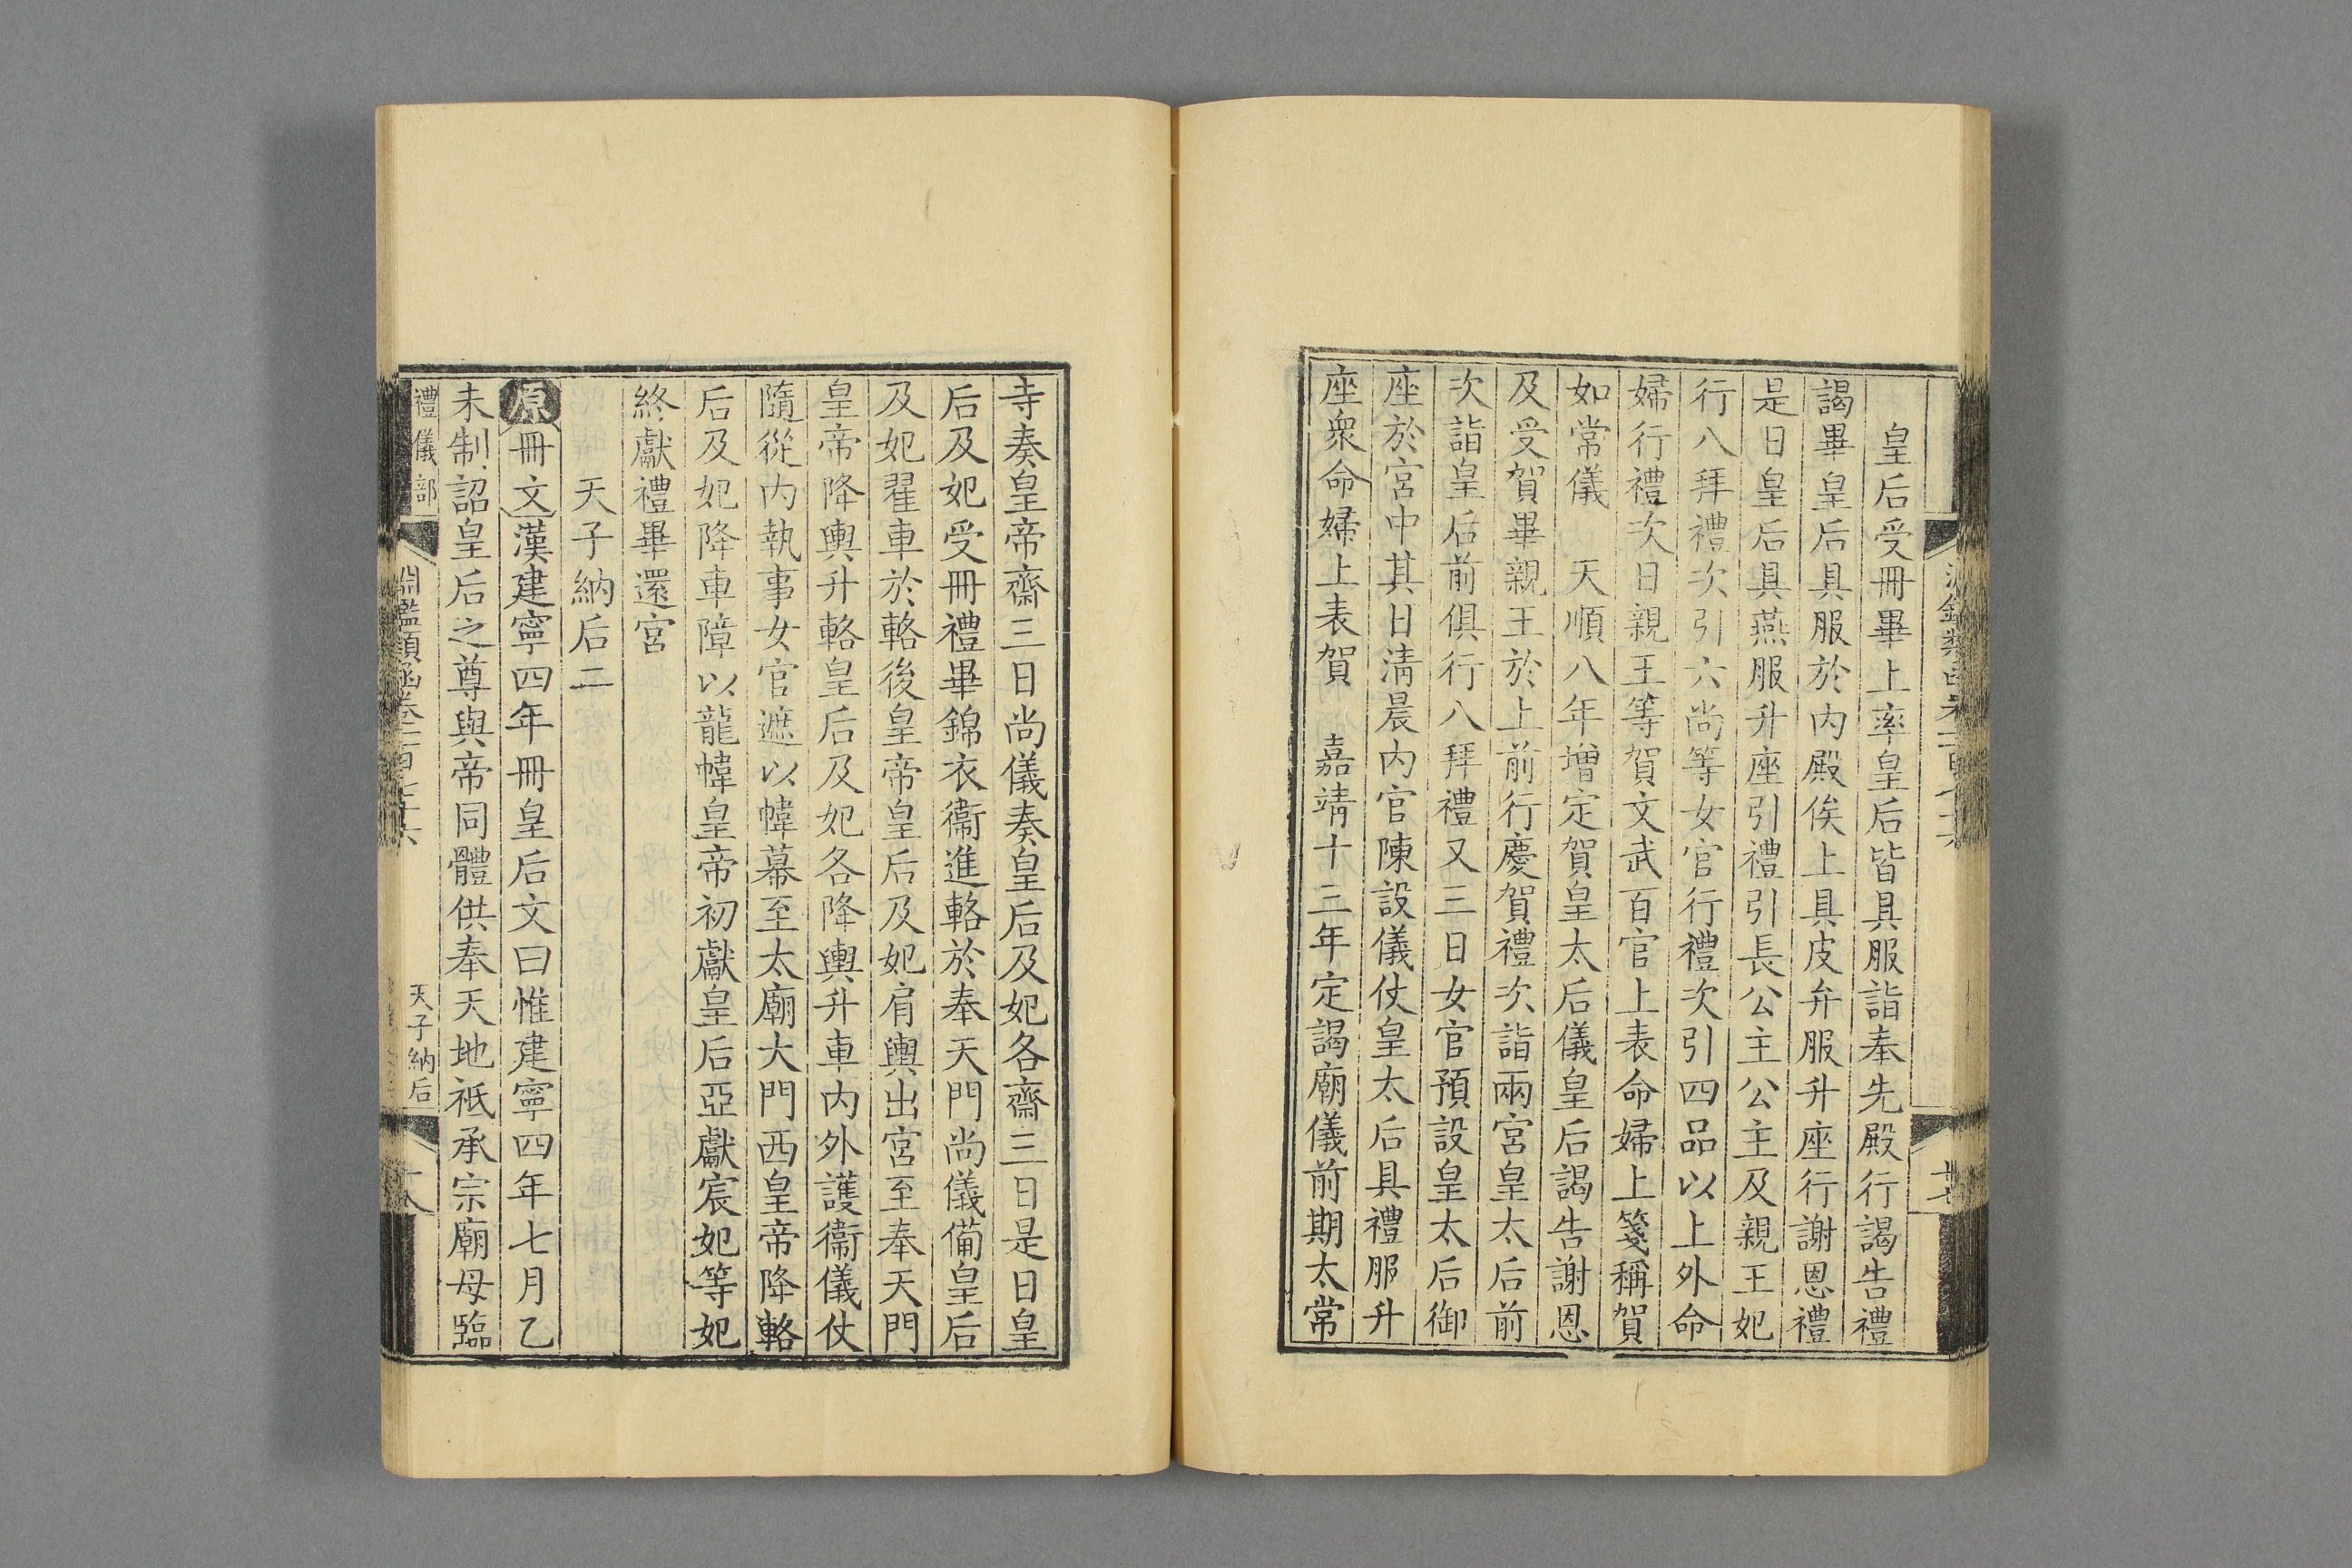 皇后受冊畢上率皇后皆具服詣奉先殿行謁告禮
謁畢皇后具服於内殿俟上具皮弁服升座行謝恩禮
是日皇后具燕服升座引禮引長公主公主及親王妃
行八拜禮次引六尚等女官行禮次引四品以上外命
婦行禮次日親王等賀文武百官上表命婦上箋稱賀
如常儀 天順八年增定賀皇太后儀皇后謁告謝恩
及受賀畢親王於上前行慶賀禮次詣兩宮皇太后前
次詣皇后前俱行八拜禮又三日女官預設皇太后御
座於宮中其日清晨内官陳設儀仗皇太后具禮服升
座衆命婦上表賀 嘉靖十三年定謁廟儀前期太常
寺奏皇帝齋三日尚儀奏皇后及妃各齋三日是日皇
后及妃受冊禮畢錦衣衞進輅於奉天門尚儀備皇后
及妃翟車於輅後皇帝皇后及妃肩輿出宮至奉天門
皇帝降輿升輅皇后及妃各降輿升車内外護衞儀仗
隨從内執事女官遮以幃幕至太廟大門西皇帝降輅
后及妃降車障以龍幃皇帝初獻皇后亞獻宸妃等妃
終獻禮畢還宮
天子納后二
原冊文漢建寧四年冊皇后文曰惟建寧四年七月乙
未制詔皇后之尊與帝同體供奉天地祗承宗廟母臨
禮儀部
淵鑑類函卷
天子納后